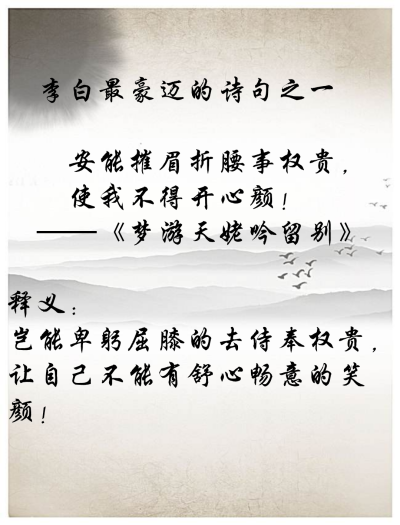 李白最豪迈的诗句之一
安能摧眉折腰事权贵，
使我不得开心颜！
——《梦游天姥吟留别》
释义：
岂能卑躬屈膝的去侍奉权贵，
让自己不能有舒心畅意的笑
颜！